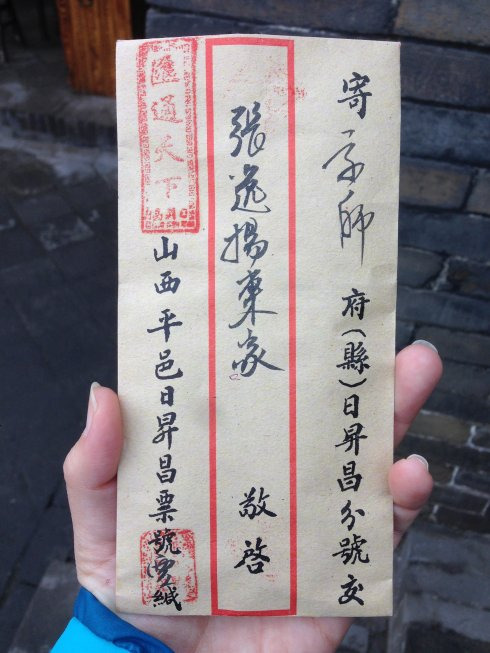 寄京師府(縣)日昇昌分號交
張逸揚東家 敬啓
匯通天下
山西平邑日昇昌票號緘